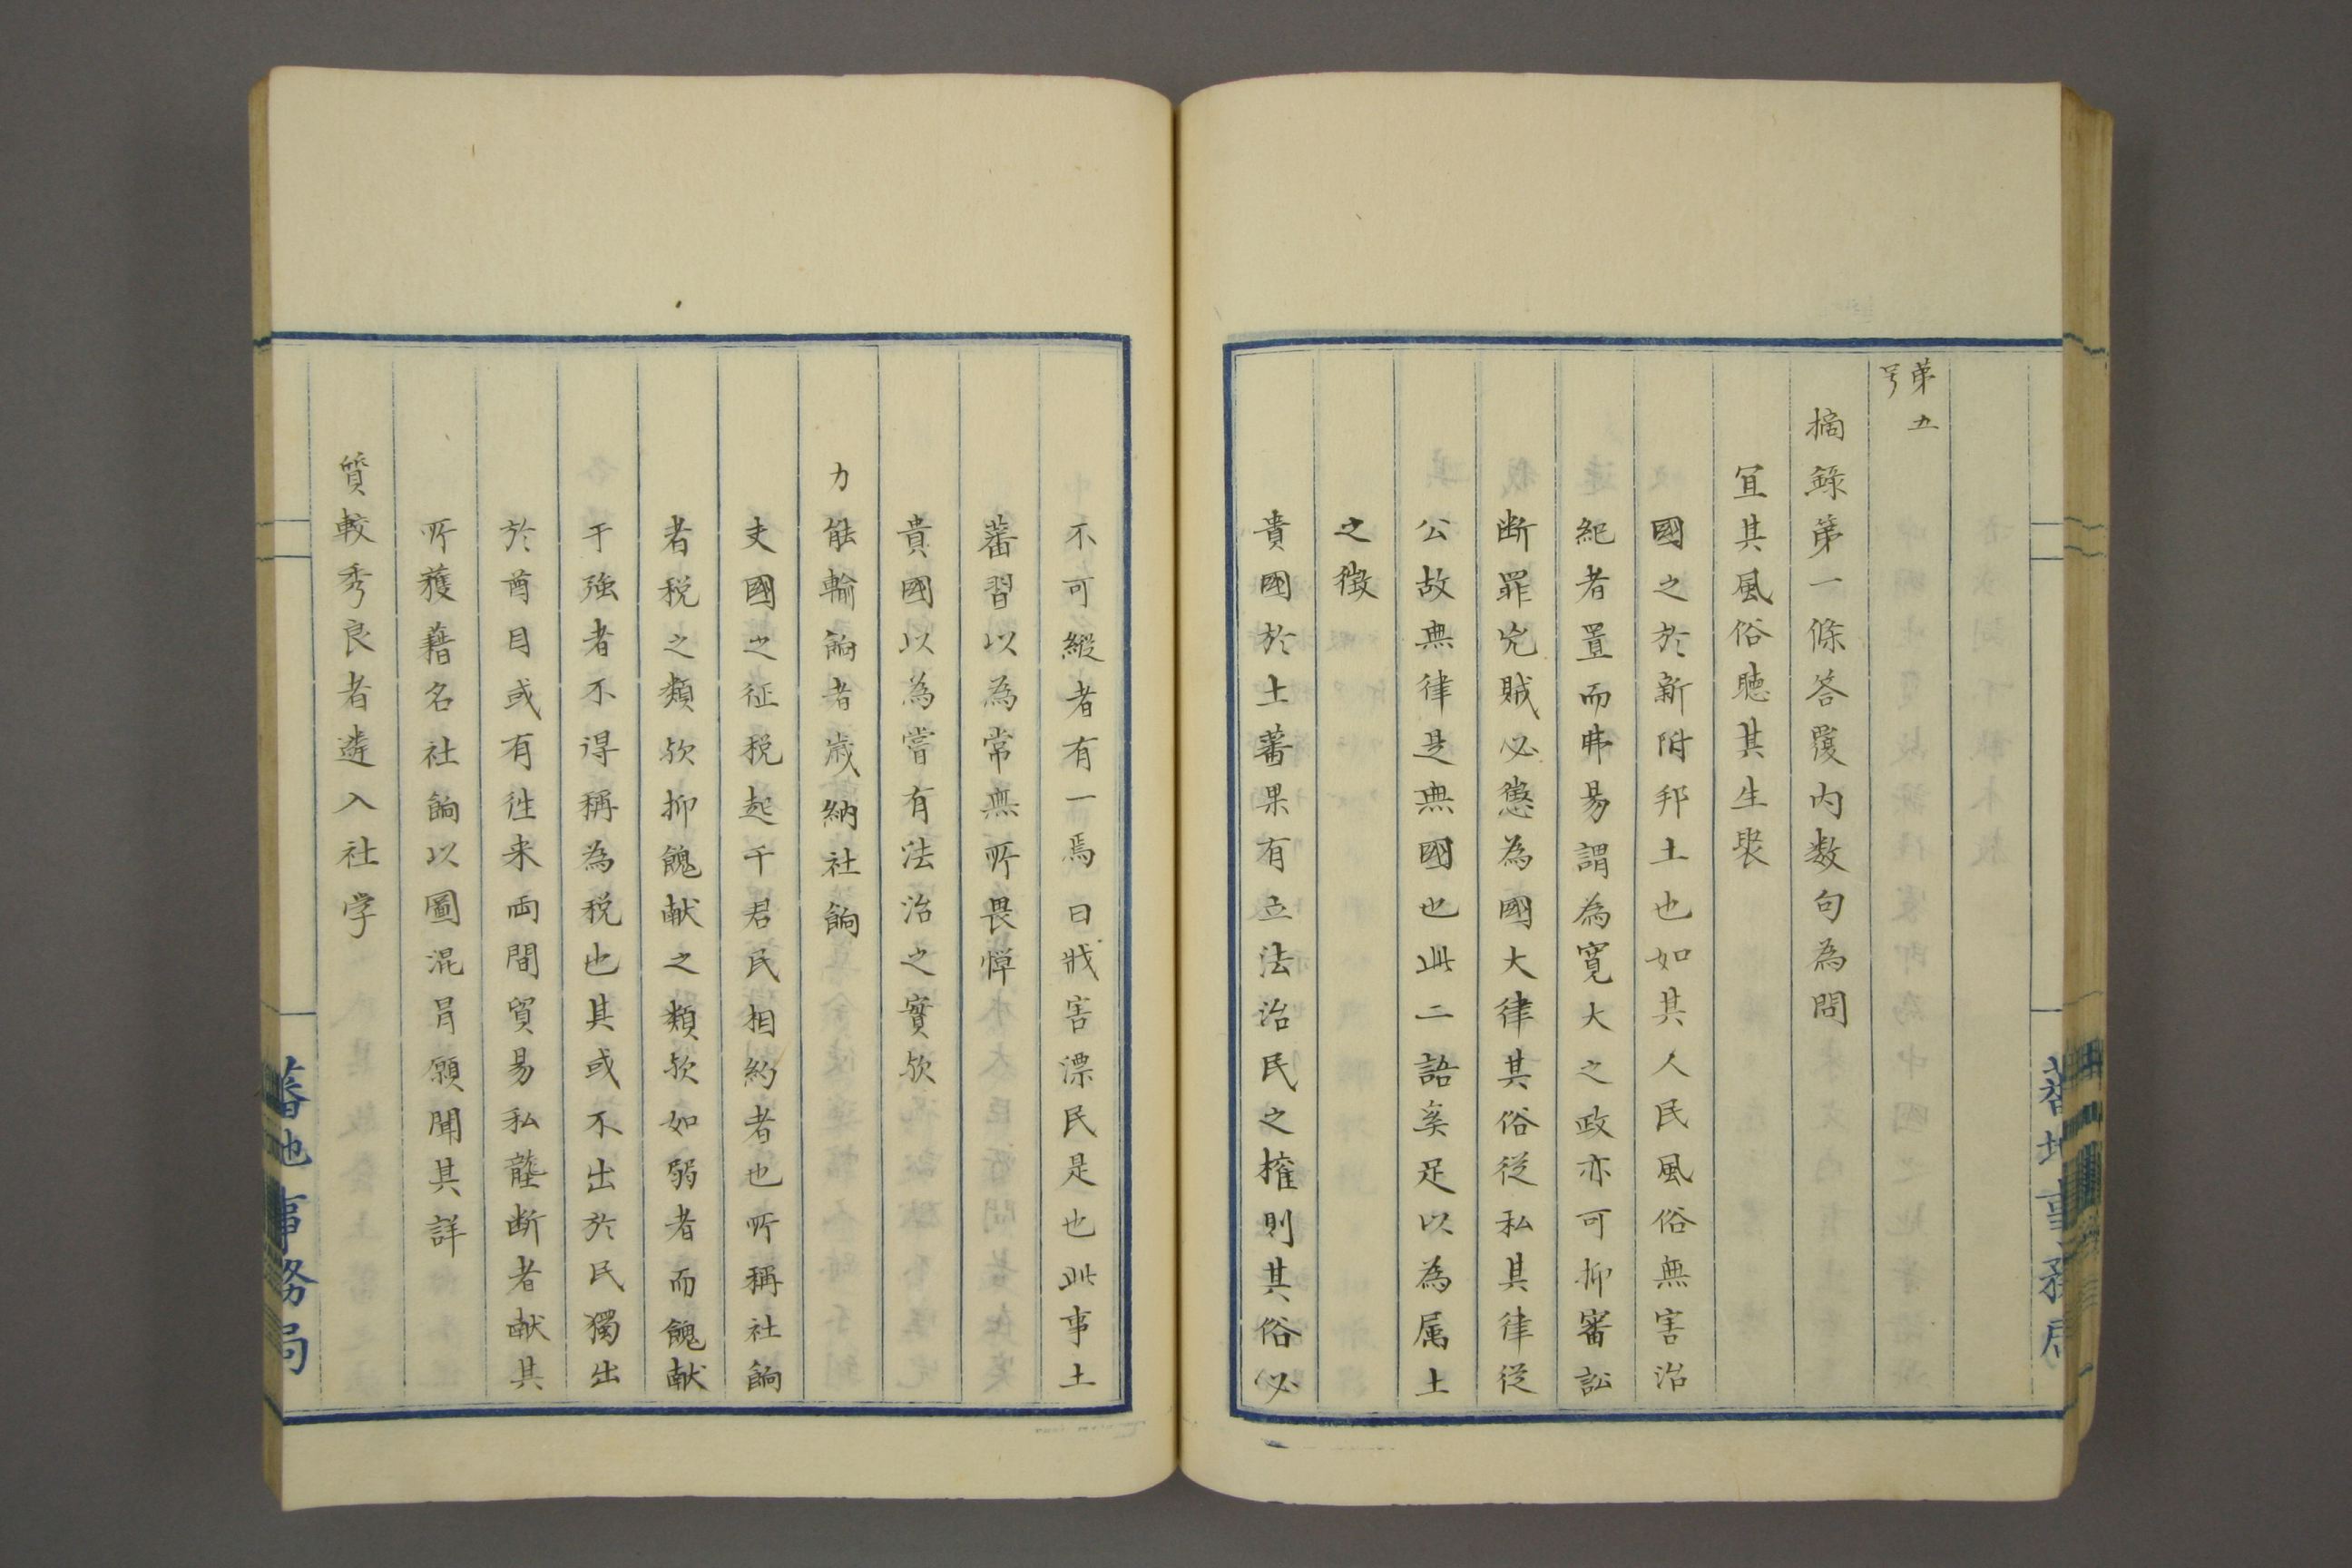 第五
号
摘錄第一條答覆内数句為問
宜其風俗聴其生聚
國之於新附邦土也如其人民風俗無害治
紀者置而弗易謂為寛大之政亦可抑審訟
断罪兇賊必懲為國大律其俗従私其律従
公故無律是無國也此二語奚足以為属土
之徴
貴國於土蕃果有立法治民之権則其俗必
蕃地事務局
不可縦者有一焉曰戕害漂民是也此事土
蕃習以為常無所畏憚
貴國以為嘗有法治之實欤
力能輸餉者歳納社餉
夫國之征税起于君民相約者也所稱社餉
者税之類欤抑餽献之類欤如弱者而餽献
于強者不得稱為税也其或不出於民獨出
於酋目或有徃来両間貿易私龍断者献其
所獲藉名社餉以圖混冐願聞其詳
質較秀良者遴入社学
蕃地事務局